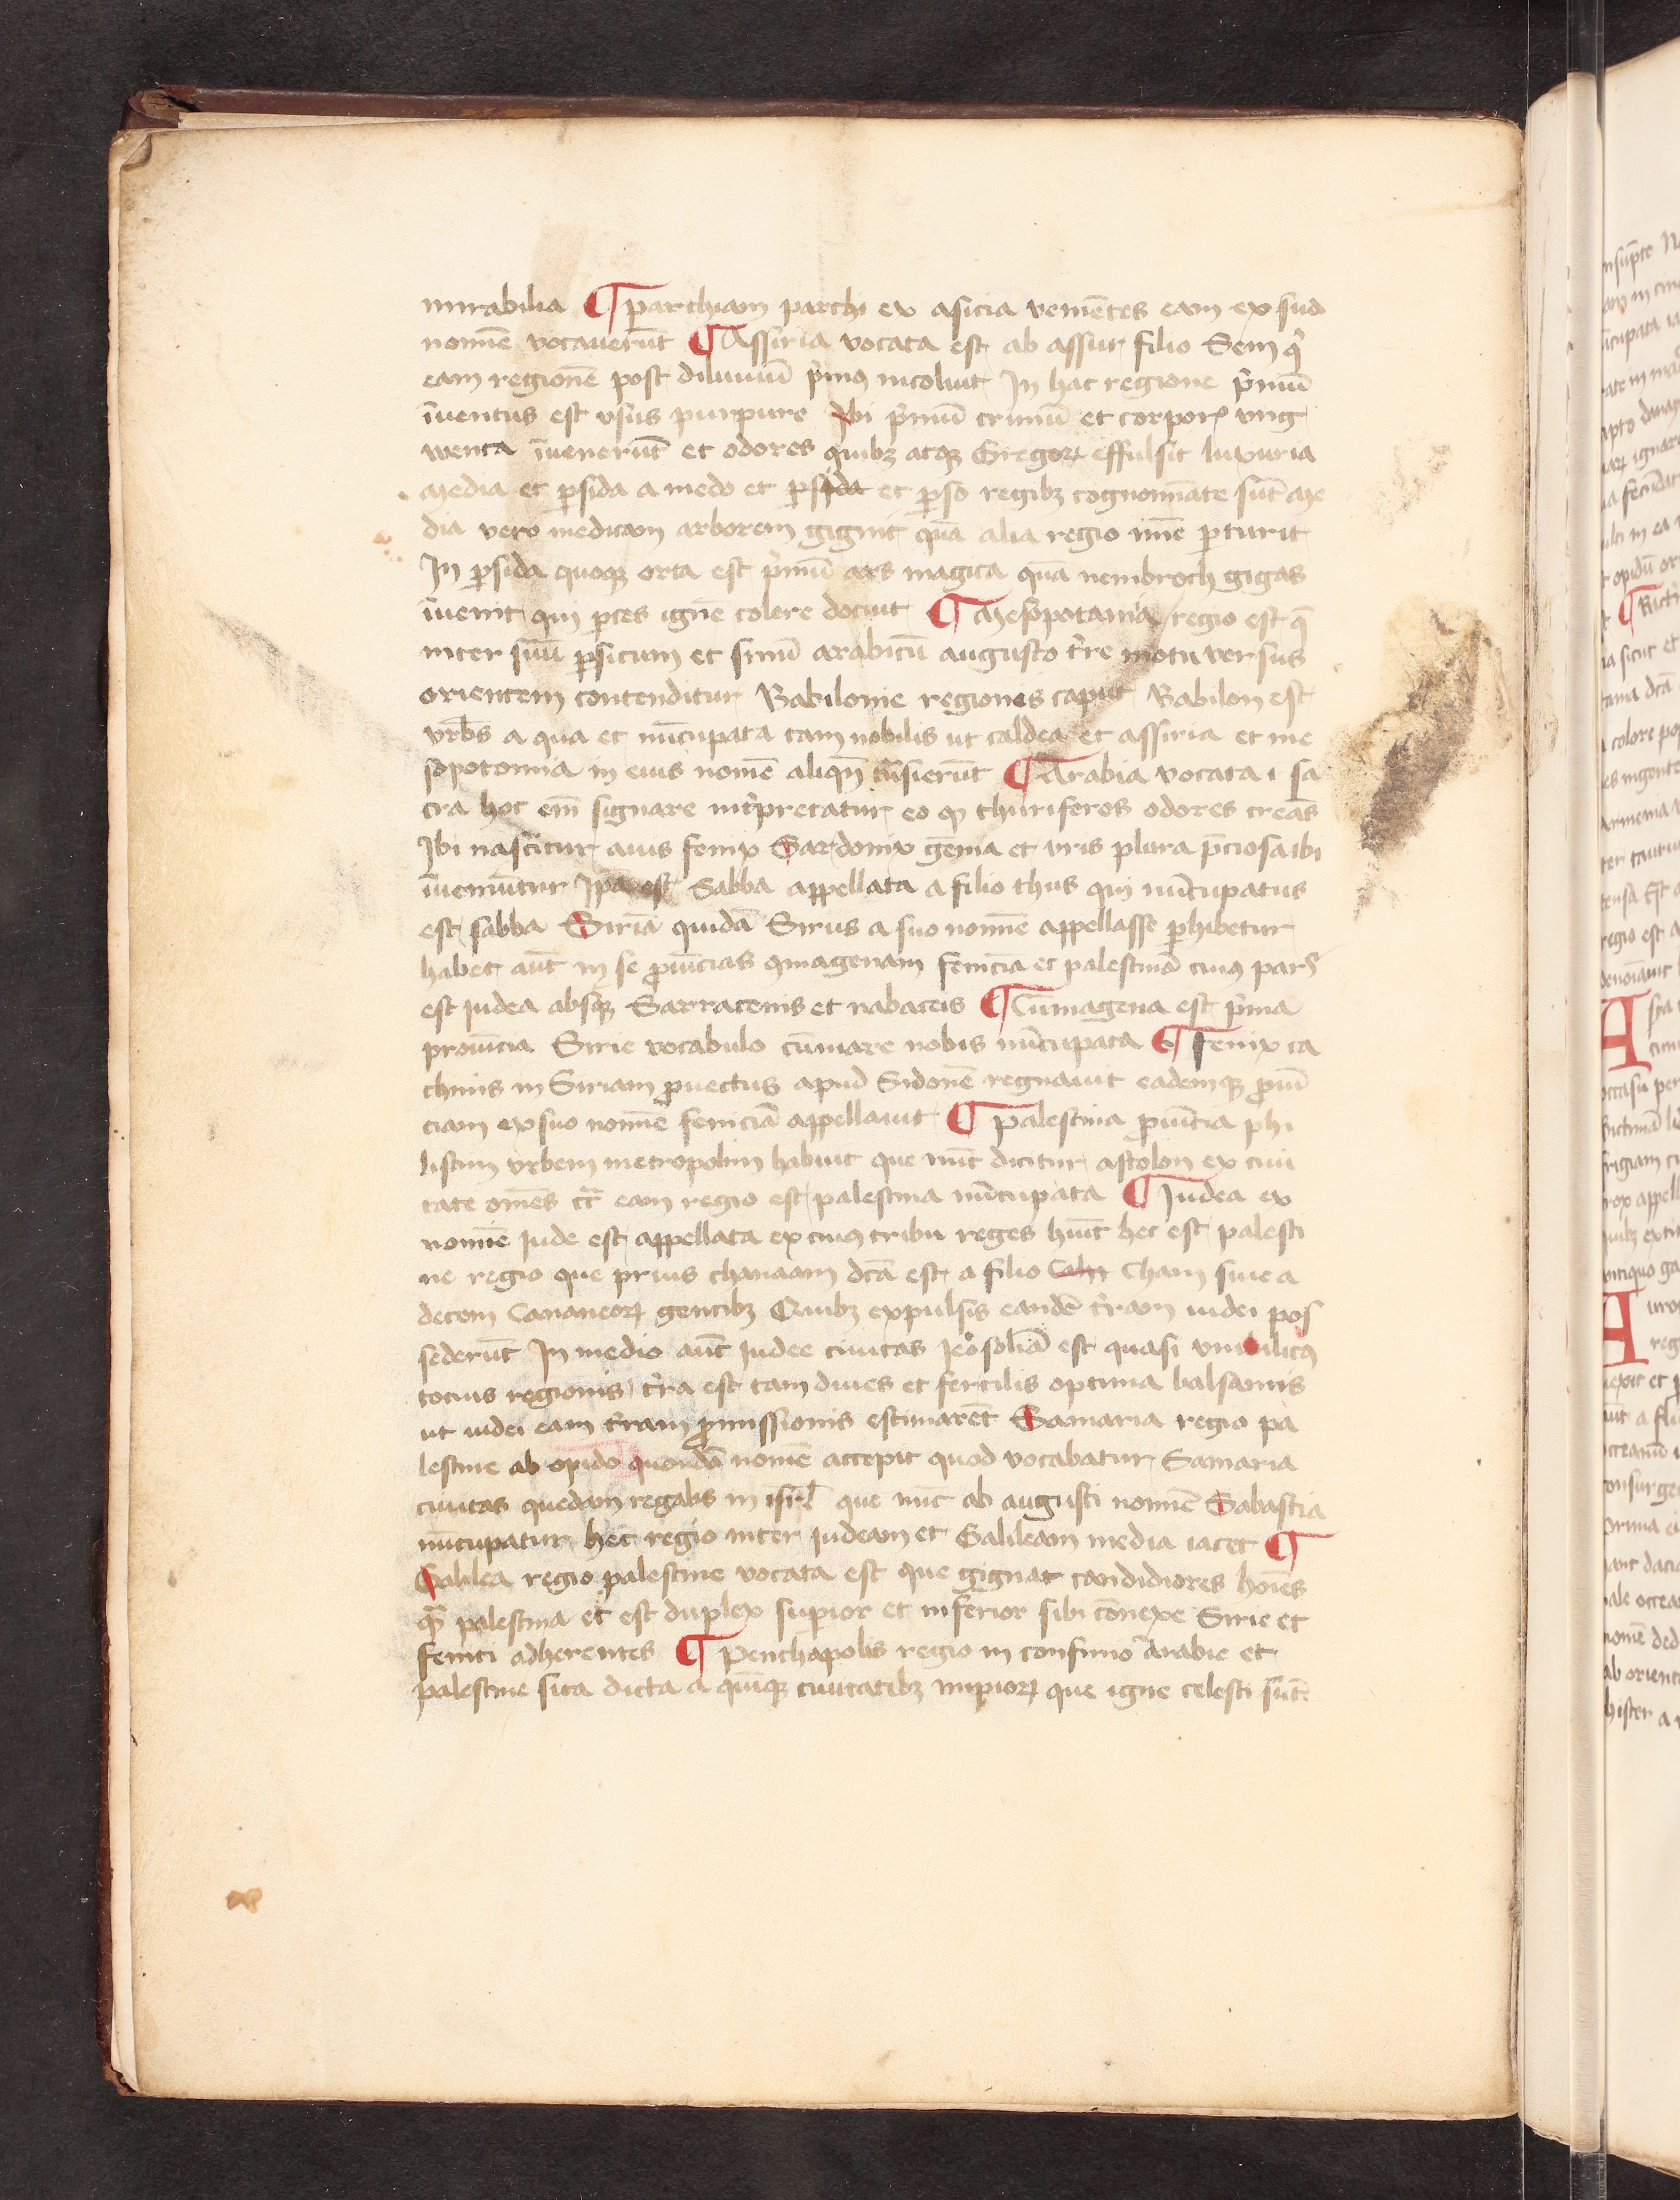 mirabilia ¶ parthiam parthi ex asicia veniẽtes eam ex sua
nomiẽ vocauerũt ¶ Assiria vocata est ab assur filio Sem qⁱ
eam regionẽ post diluuiũ pⁱmꝰ incoluit In hac regione pⁱmũ
iũentus est vsus purpure Ibi pⁱmũ criniũ et corporꝝ vng
wenta iũenerũt et odores quibꝫ atqꝫ Gregorꝝ effulsit luxuria
Media et ꝑsida a medo et ꝑsida et ꝑso regibꝫ cognomiãte sũt Me
dia vero medicam arborem gignit quã alia regio mĩe ꝑturit
In ꝑsida quoqꝫ orta est pⁱmũ ars magica quã nembroth gigas
iũenit qui ꝑtes ignẽ colere docuit ¶ Mesopotamia regio est q̃
inter sinũ ꝑsicum et sinũ arabicũ augusto t̾re motu versus
orientem contenditur Babilonie regiones caput Babilon est
vrbs a qua et nũcupata tam nobilis ut caldea et assiria et me
sopotomia in eius nomẽ aliqñ trãsierũt ¶ Arabia vocata ı sa
cra hoc em̃ signare int̾pretatur eo ꝙ thuriferos odores creãs
Ibi nascitur auis fenix Sardonix gẽma et iris plura p̃ciosa ibi
iũeniũtur Ipa est Sabba appellata a filio thus qui nũcupatus
est sabba Siriã quidã Sirus a suo nomiẽ appellasse ꝑhibetur
habet aũt in se ꝓuĩcias ꝯmagenam feniciã et palestinã cuiꝰ pars
est iudea absqꝫ Sarracenis et nabateis ¶ Cũmagena est pⁱma
prouĩcia Sirie vocabulo cũmare nobis nũcupata ¶ Fenix ca
thmis in Siriam ꝓuectus apud Sidonẽ regnauit eademqꝫ ꝓuĩ
ciam ex suo nomiẽ feniciã appellauit ¶ palestina ꝓuĩcia phi
listim vrbem metropolim habuit que nũc dicitur astolon ex ciui
tate om̃es cĩ̾ eam regio est palestina nũcupata ¶ Iudea ex
nomiẽ Iude est appellata ex cuiꝰ tribu reges hũit hec est palesti
ne regio que prius chanaam dc̃a est a filio Cham siue a
decem Cananeorꝝ gentibꝫ Quibꝫ expulsis eandẽ t̾ram iudei pos
sederũt In medio aũt Iudee ciuitas Ieo̾solimã est quasi vmbilicꝰ
tocius regionis t̾ra est tam diues et fertilis optima balsamis
ut iudei eam t̾ram ꝓmissionis estimarẽt Samaria regio pa
lestine ab opido quondã nomẽ accepit quod vocabatur Samaria
ciuitas quedam regalis in isrl̃ que nũc ab augusti nomiẽ Sabastia
nũcupatur hec regio inter iudeam et Galileam media iacet ¶
Galilea regio palestine vocata est que gignat candidiores hoĩes
q̃ palestina et est duplex supior et inferior sibi cõnexe Sirie et
feniti adherentes ¶ Penthapolis regio in confinio arabie et
palestine sita dicta a quĩqꝫ ciuitatibꝫ impiorꝝ que igne celesti sũt